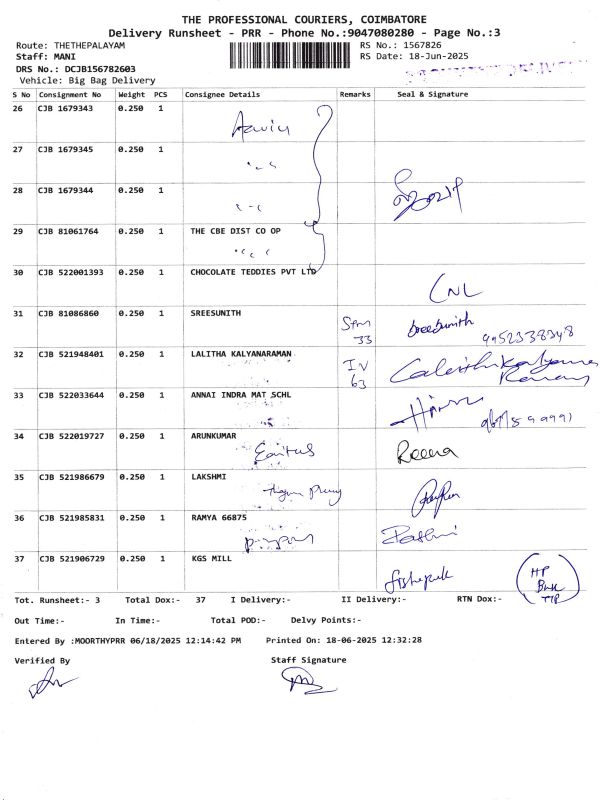 THE PROFESSIONAL COURIERS, COIMBATORE
Delivery Runsheet - PRR - Phone No.:9047080280 - Page No.:3
Route: THETHEPALAYAM RS No.: 1567826
Staff: MANI RS Date: 18-Jun-2025
DRS No.: DCJB156782603
Vehicle: Big Bag Delivery
S No Consignment No Weight PCS Consignee Details Remarks Seal & Signature
26 CJB 1679343 0.250 1
27 CJB 1679345 0.250 1
28 CJB 1679344 0.250 1
29 CJB 81061764 0.250 1 THE CBE DIST CO OP
30 CJB 522001393 0.250 1 CHOCOLATE TEDDIES PVT LTD
CNL
31 CJB 81086860 0.250 1 SREESUNITH
33 Sreesunith 9952338348
32 CJB 521948401 0.250 1 LALITHA KALYANARAMAN
IV
63
33 CJB 522033644 0.250 1 ANNAI INDRA MAT SCHL
34 CJB 522019727 0.250 1 ARUNKUMAR
Reena
35 CJB 521986679 0.250 1 LAKSHMI
36 CJB 521985831 0.250 1 RAMYA 66875
37 CJB 521906729 0.250 1 KGS MILL
HP
Tot. Runsheet:- 3 Total Dox:- 37 I Delivery:- II Delivery:- RTN Dox:-
Out Time:- In Time:- Total POD:- Delvy Points:-
Entered By :MOORTHYPRR 06/18/2025 12:14:42 PM Printed On: 18-06-2025 12:32:28
Verified By Staff Signature